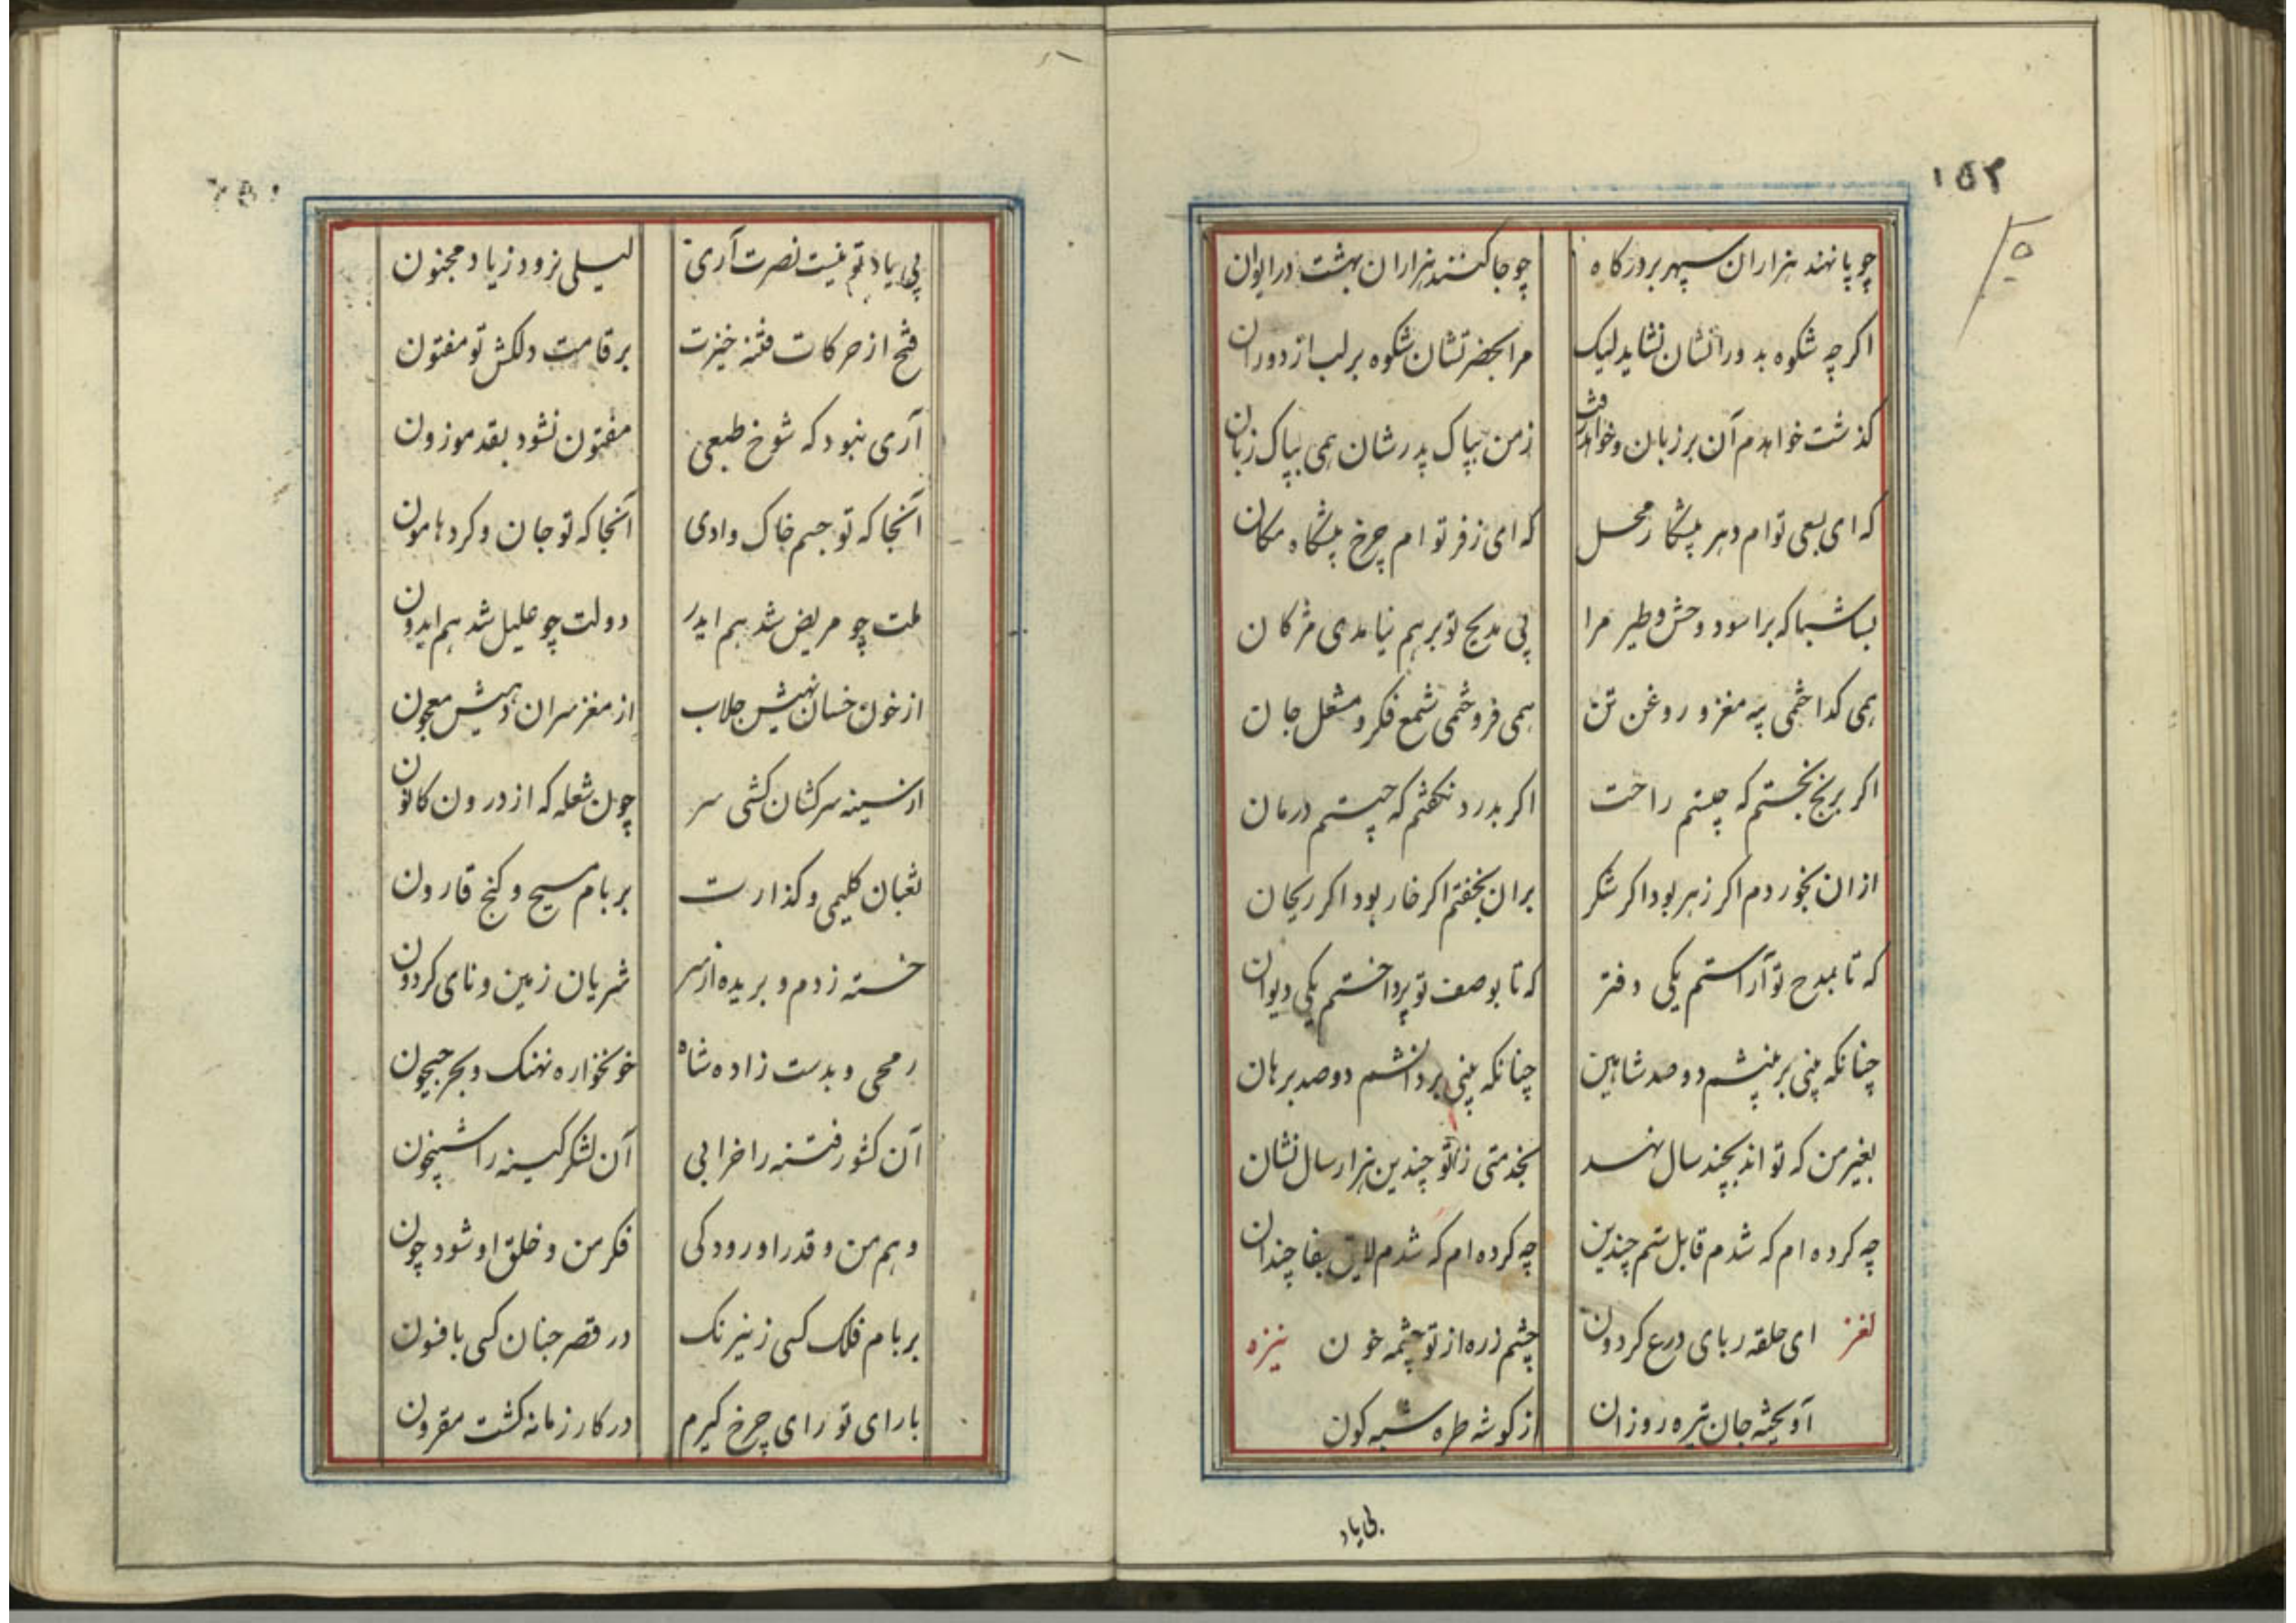 ۱۵۲
چو پا نهند هزاران سپهر بر درکاه
چو جا کنند هزاران بهشت در ایوان
اکر چه شکوه بدورانشان نشاید لیک
مرا بحضرتشان شکوه بر لب از دوران
کذشت خواهدم آن بر زبان و خواهد رفت
زمن بپاک پدرشان همی بپاک زبان
که ای بسعی توام دهر پیشکار محل
که ای زفر توام چرخ پیشکاه مکان
بسا شبا که براسود وحش و طیر مرا
پی مدیح تو بر هم نیامدی مژکان
همی کداختمی پیه مغز و روغن تن
همی فروختمی شمع فکر و مشعل جان
اکر برنج بخستم که چیستم راحت
اکر بدرد نکفتم که چیستم درمان
ازان بخوردم اکر زهر بود اکر شکر
بران بخفتم اکر خار بود اکر ریحان
که تا بمدح تو آراستم یکی دفتر
که تا بوصف تو پرداختم یکی دیوان
چنانکه بینی بر بینشم دو صد شاهین
چنانکه بینی بر دانشم دو صد برهان
بغیر من که تواند بچند سال نهد
بخدمتی زتو چندین هزار سال نشان
چه کرده ام که شدم قابل ستم چندین
چه کرده ام که شدم لایق جفا چندان
لغز ای حلقه ربای درع کردون
چشم زره از تو چشمه خون نیزه
آویخته جان تیره روزان
از کوشه طره سیه کون
بی یاد
بی یاد تو نیست نصرت آری
لیلی نرود زیاد مجنون
فتح از حرکات فتنه خیزت
بر قامت دلکش تو مفتون
آری نبود که شوخ طبعی
مفتون نشود بقد موزون
آنجا که تو جسم خاک وادی
آنجا که تو جان و کرد هامون
ملت چو مریض شد هم ایدر
دولت چو علیل شد هم ایدون
از خون خسان نهیش جلاب
از مغز سران دهیش معجون
از سینه سرکشان کشی سر
چون شعله که از درون کانون
ثعبان کلیمی و کذارت
بر بام مسیح و کنج قارون
خسته زدم و بریده از سر
شریان زمین و نای کردون
رمحی و بدست زاده شاه
خونخواره نهنک و بحر جیحون
آن کشور فتنه را خرابی
آن لشکر کینه را شبیخون
وهم من و قدر او رود کی
فکر من و خلق او شود چون
بر بام فلک کسی زنیرنک
در قصر جنان کسی بافسون
با رای تو رای چرخ کیرم
در کار زمانه کشت مقرون